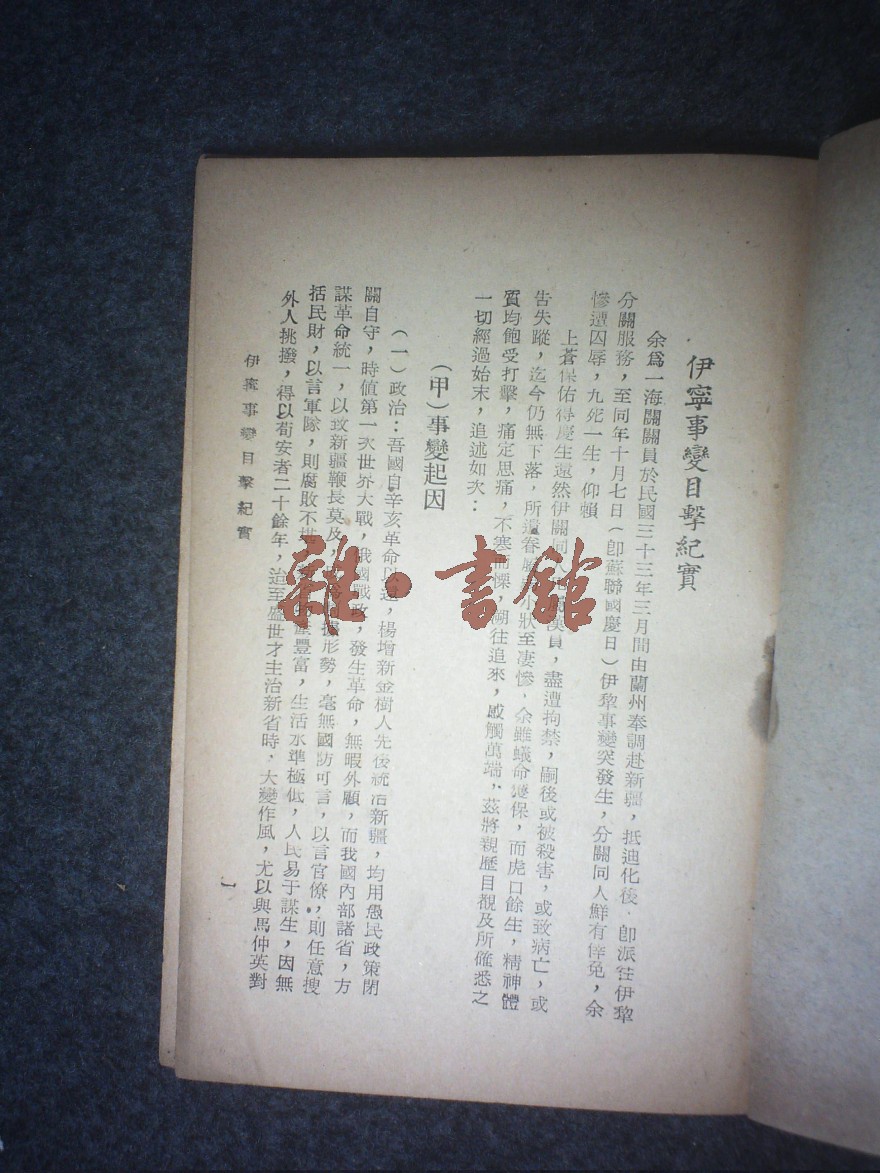 伊寧事變目擊紀實
余爲一海關關員於民國三十三年三月間由蘭州奉調赴新疆，抵迪化後，卽派往伊犂
分關服務，至同年十月七日（卽蘇聯國慶日）伊犂事變突發生，分關同人鮮有倖免，余
慘遭囚辱，九死一生，仰賴
上蒼保佑得慶生還然伊關同人漢員，盡遭拘禁，嗣後或被殺害，或致病亡，或
告失蹤，迄今仍無下落，所遺眷小狀至凄慘，余雖蟻命獲保，而虎口餘生，精神體
質均飽受打擊，痛定思痛，不寒而慄，溯往追來，感觸萬端，茲將親歷目覩及所確悉之
一切經過始末，追述如次：
（甲）事變起因
（一）政治：吾國自辛亥革命以還，楊增新金樹人先後統治新疆，均用愚民政策閉
關自守，時值第一次世界大戰，俄國戰敗，發生革命，無暇外顧，而我國內部諸省，方
謀革命統一，以致新疆鞭長莫及，形勢，毫無國防可言，以言官僚，則任意搜
括民財，以言軍隊，則腐敗不堪，豐富，生活水準極低，人民易于謀生，因無
外人挑撥，得以荀安者二十餘年，迨至盛世才主治新省時，大變作風，尤以與馬仲英對
伊寧事變目擊紀實
一
雜·書館